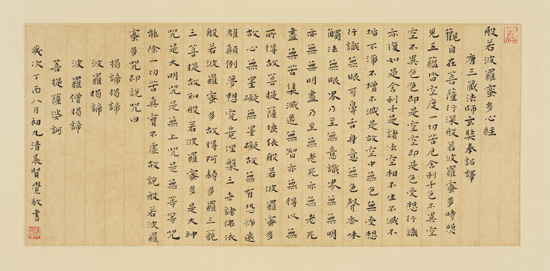 般若波羅蜜多心經
唐三藏法師玄奘奉詔譯
觀自在菩薩行深般若波羅蜜多時照
見五蘊皆空度一切苦厄舍利子色不異空
空不異色色即是空空即是色受想行識
亦復如是舍利子是諸法空相不生不滅不
垢不淨不增不減是故空中無色無受想
行識無眼耳鼻舌身意無色聲香味
觸法無眼界乃至無意識界無無明
亦無無明盡乃至無老死亦無老死
盡無苦集滅道無智亦無得以無
所得故菩提薩埵依般若波羅蜜多
故心無罣礙無罣礙故無有恐怖遠
離顛倒夢想究竟涅槃三世諸佛依
般若波羅蜜多故得阿耨多羅三藐
三菩提故知般若波羅蜜多是大神
咒是大明咒是無上咒是無等等咒
能除一切苦真實不虛故說般若波羅
蜜多咒即說咒曰
揭諦揭諦
波羅揭諦
波羅僧揭諦
菩提薩婆訶
歲次丁酉八月初九清晨賢覺敬書